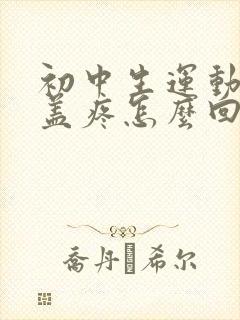 初中生運動
盖疼怎麼回
喬丹 希尔